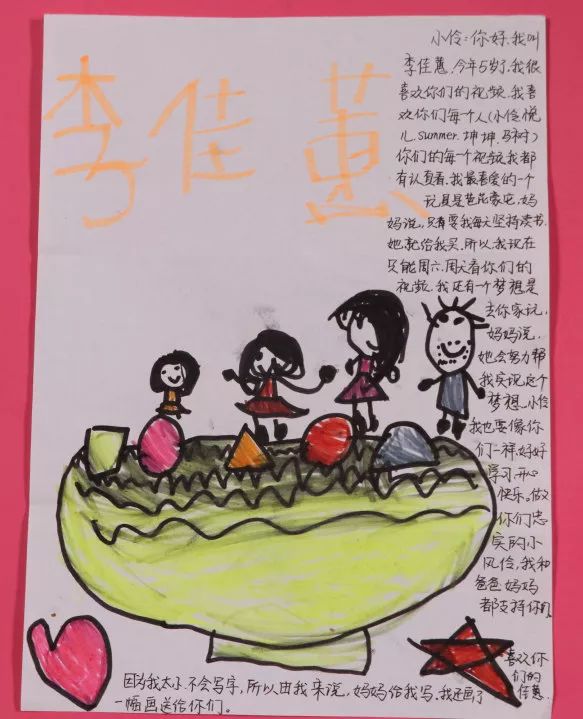 李佳蕙
小伶:你好,我叫
李佳蕙,今年5岁了,我很
喜欢你们的视频,我喜
欢你们每个人(小伶,悦
儿,summer,坤坤,马树)
你们的每个视频,我都
有认真看,我最喜爱的一个
玩具是芭比豪宅,妈
妈说,只有要我每天坚持读书,
她就给我买,所以,我现在
只能周六,周天看你们的
视频,我还有一个梦想是
去你家玩,
妈妈说,
她会努力帮
我实现这个
梦想,小伶
我也要像你
们一样,好好
学习,开心
快乐。做
你们忠
实的小
风伶,我和
爸爸,妈妈
都支持你们
喜欢你
们的
佳蕙.
因为我太小,不会写字,所以由我来说,妈妈给我写,我还画了
一幅画送给你们。